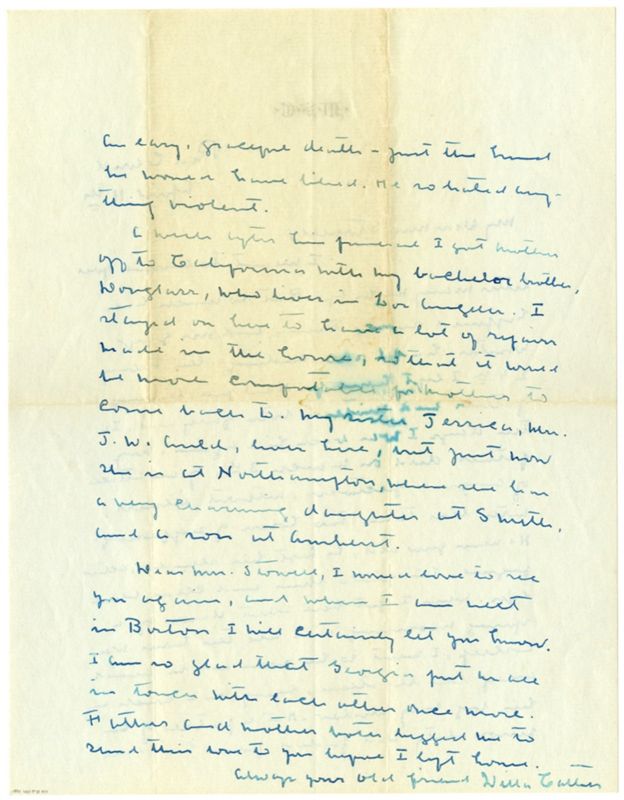 an easy, graceful death - just the kind
he would have liked. He so hated any-
thing violent.
A week after his funeral I got mother
off to California with my bachelor brother,
Douglass, who lives in Los Angeles. I
stayed on here to have a lot of repairs
made in the house, so that it would
be more comfortable for mother to
come back to. My sister Jessica, Mrs.
J. W. Auld, lives here, but just now
she is at Northampton, where she has
a very charming daughter at Smith,
and a son at Amherst.
Dear Mrs. Stowell, I would love to see
you again, and when I am next
in Boston I will certainly let you know.
I am so glad that Georgie put us all
in touch with each other once more.
Father and mother both begged me to
send their love to you before I left home.
Always your old friend Willa Cather